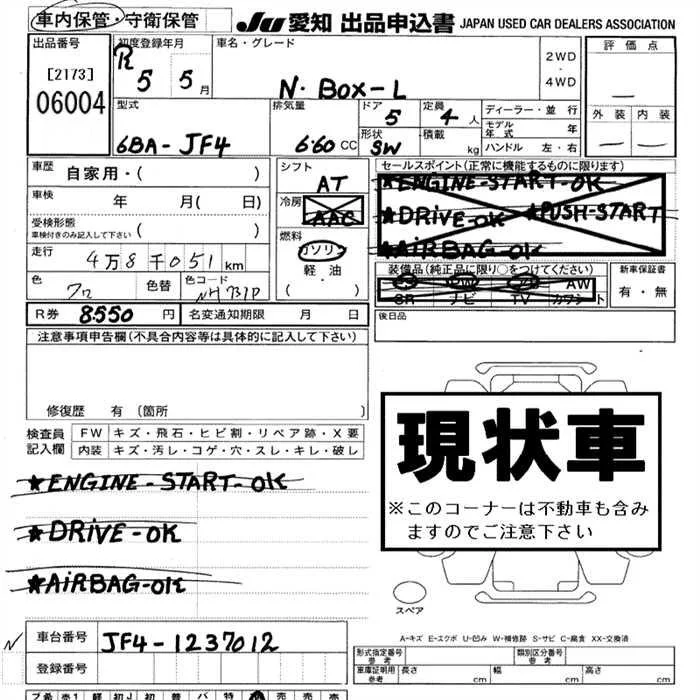 車内保管・守衛保管
JU 愛知 出品申込書 JAPAN USED CAR DEALERS ASSOCIATION
出品番号
[2173]
06004
初度登録年月
R 5 5月
車名・グレード
N・BOX-L
2WD
・
4WD
評価点
外装 内装
型式
6BA-JF4
排気量
660 CC
ドア
5
形状
SW
定員
4人
積載
kg
ディーラー・並行
モデル年式 年
ハンドル 左・右
車歴 自家用・( )
車検 年 月( 日)
受検形態
車検付きのみ記入して下さい ( )
走行
4万8千051km
色
クロ
色替
色コード
NH731P
シフト
AT
冷房
AAC
燃料
ガソリン
軽・油
( ・ )
セールスポイント(正常に機能するものに限ります)
★ENGINE-START-OK
★DRIVE-OK ★PUSH-START
★AIRBAG-OK
装備品(純正品に限り○をつけてください)
PW AW
SR ナビ TV カワシート
新車保証書
有・無
R券 8550円 名変通知期限 月 日
後日品
注意事項申告欄(不具合内容等は具体的に記入して下さい)
修復歴 有 (箇所 )
検査員記入欄
FW キズ・飛石・ヒビ割・リペア跡・X要
内装 キズ・汚レ・コゲ・穴・スレ・キレ・破レ
★ENGINE-START-OK
★DRIVE-OK
★AIRBAG-OK
現状車
※このコーナーは不動車も含み
ますのでご注意下さい
スペア
A-キズ E-エクボ U-凹み W-補修跡 S-サビ C-腐食 XX-交換済
N
車台番号 JF4-1237012
登録番号
形式指定番号 参考
類別区分番号 参考
車庫証明用 参考 長さ cm 幅 cm 高さ cm